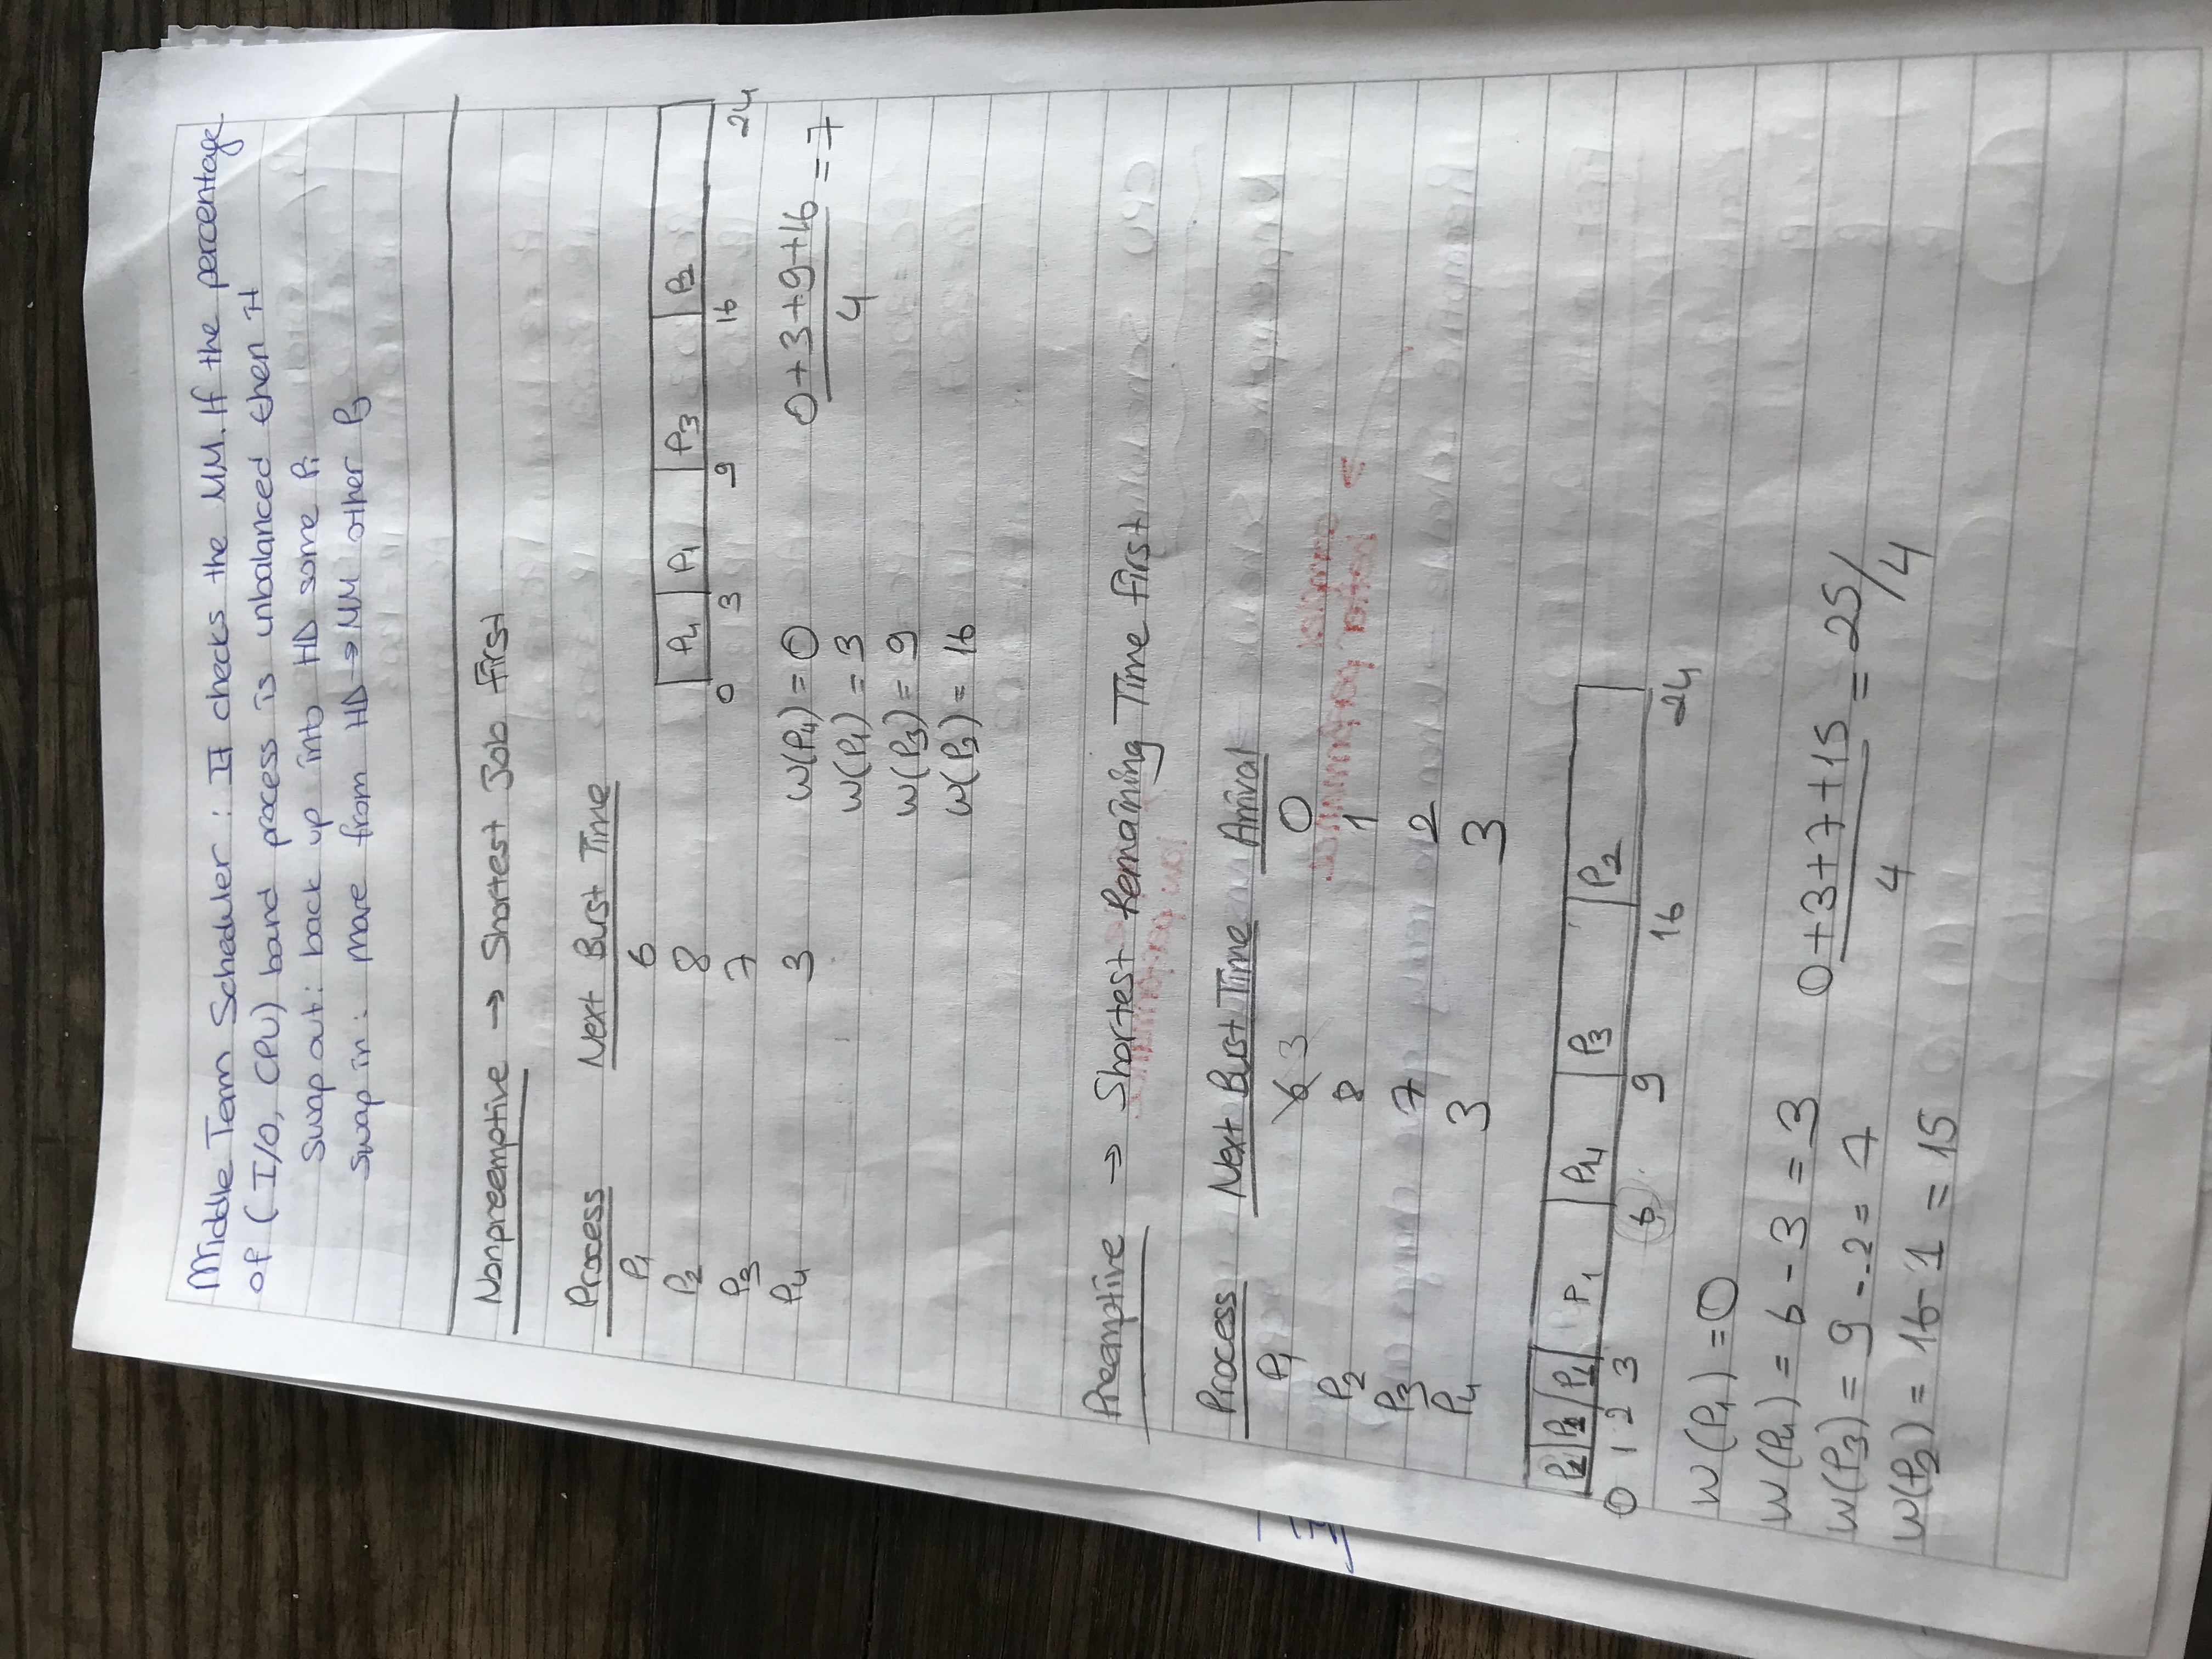 Middle Term Scheduler : It checks the MM. If the percentage
of (I/O, CPU) band process is unbalanced then it
Swap out: back up into HD some Pi
Swap in: move from HD → MM other Pj
Nonpreemptive → Shortest Job first
Process Next Burst Time
P1 6
P2 8
P3 7
P4 3
P4 P1 P3 P2
0 3 9 16 24
W(P4) = 0
W(P1) = 3
W(P3) = 9
W(P2) = 16
0+3+9+16 / 4 = 7
Preemptive → Shortest Remaining Time first
Process Next Burst Time Arrival
P1 6 3 0
P2 8 1
P3 7 2
P4 3 3
P1 P1 P1 P1 P4 P3 P2
0 1 2 3 6 9 16 24
W(P1) = 0
W(P4) = 6 - 3 = 3
W(P3) = 9 - 2 = 7
W(P2) = 16 - 1 = 15
0+3+7+15 / 4 = 25/4